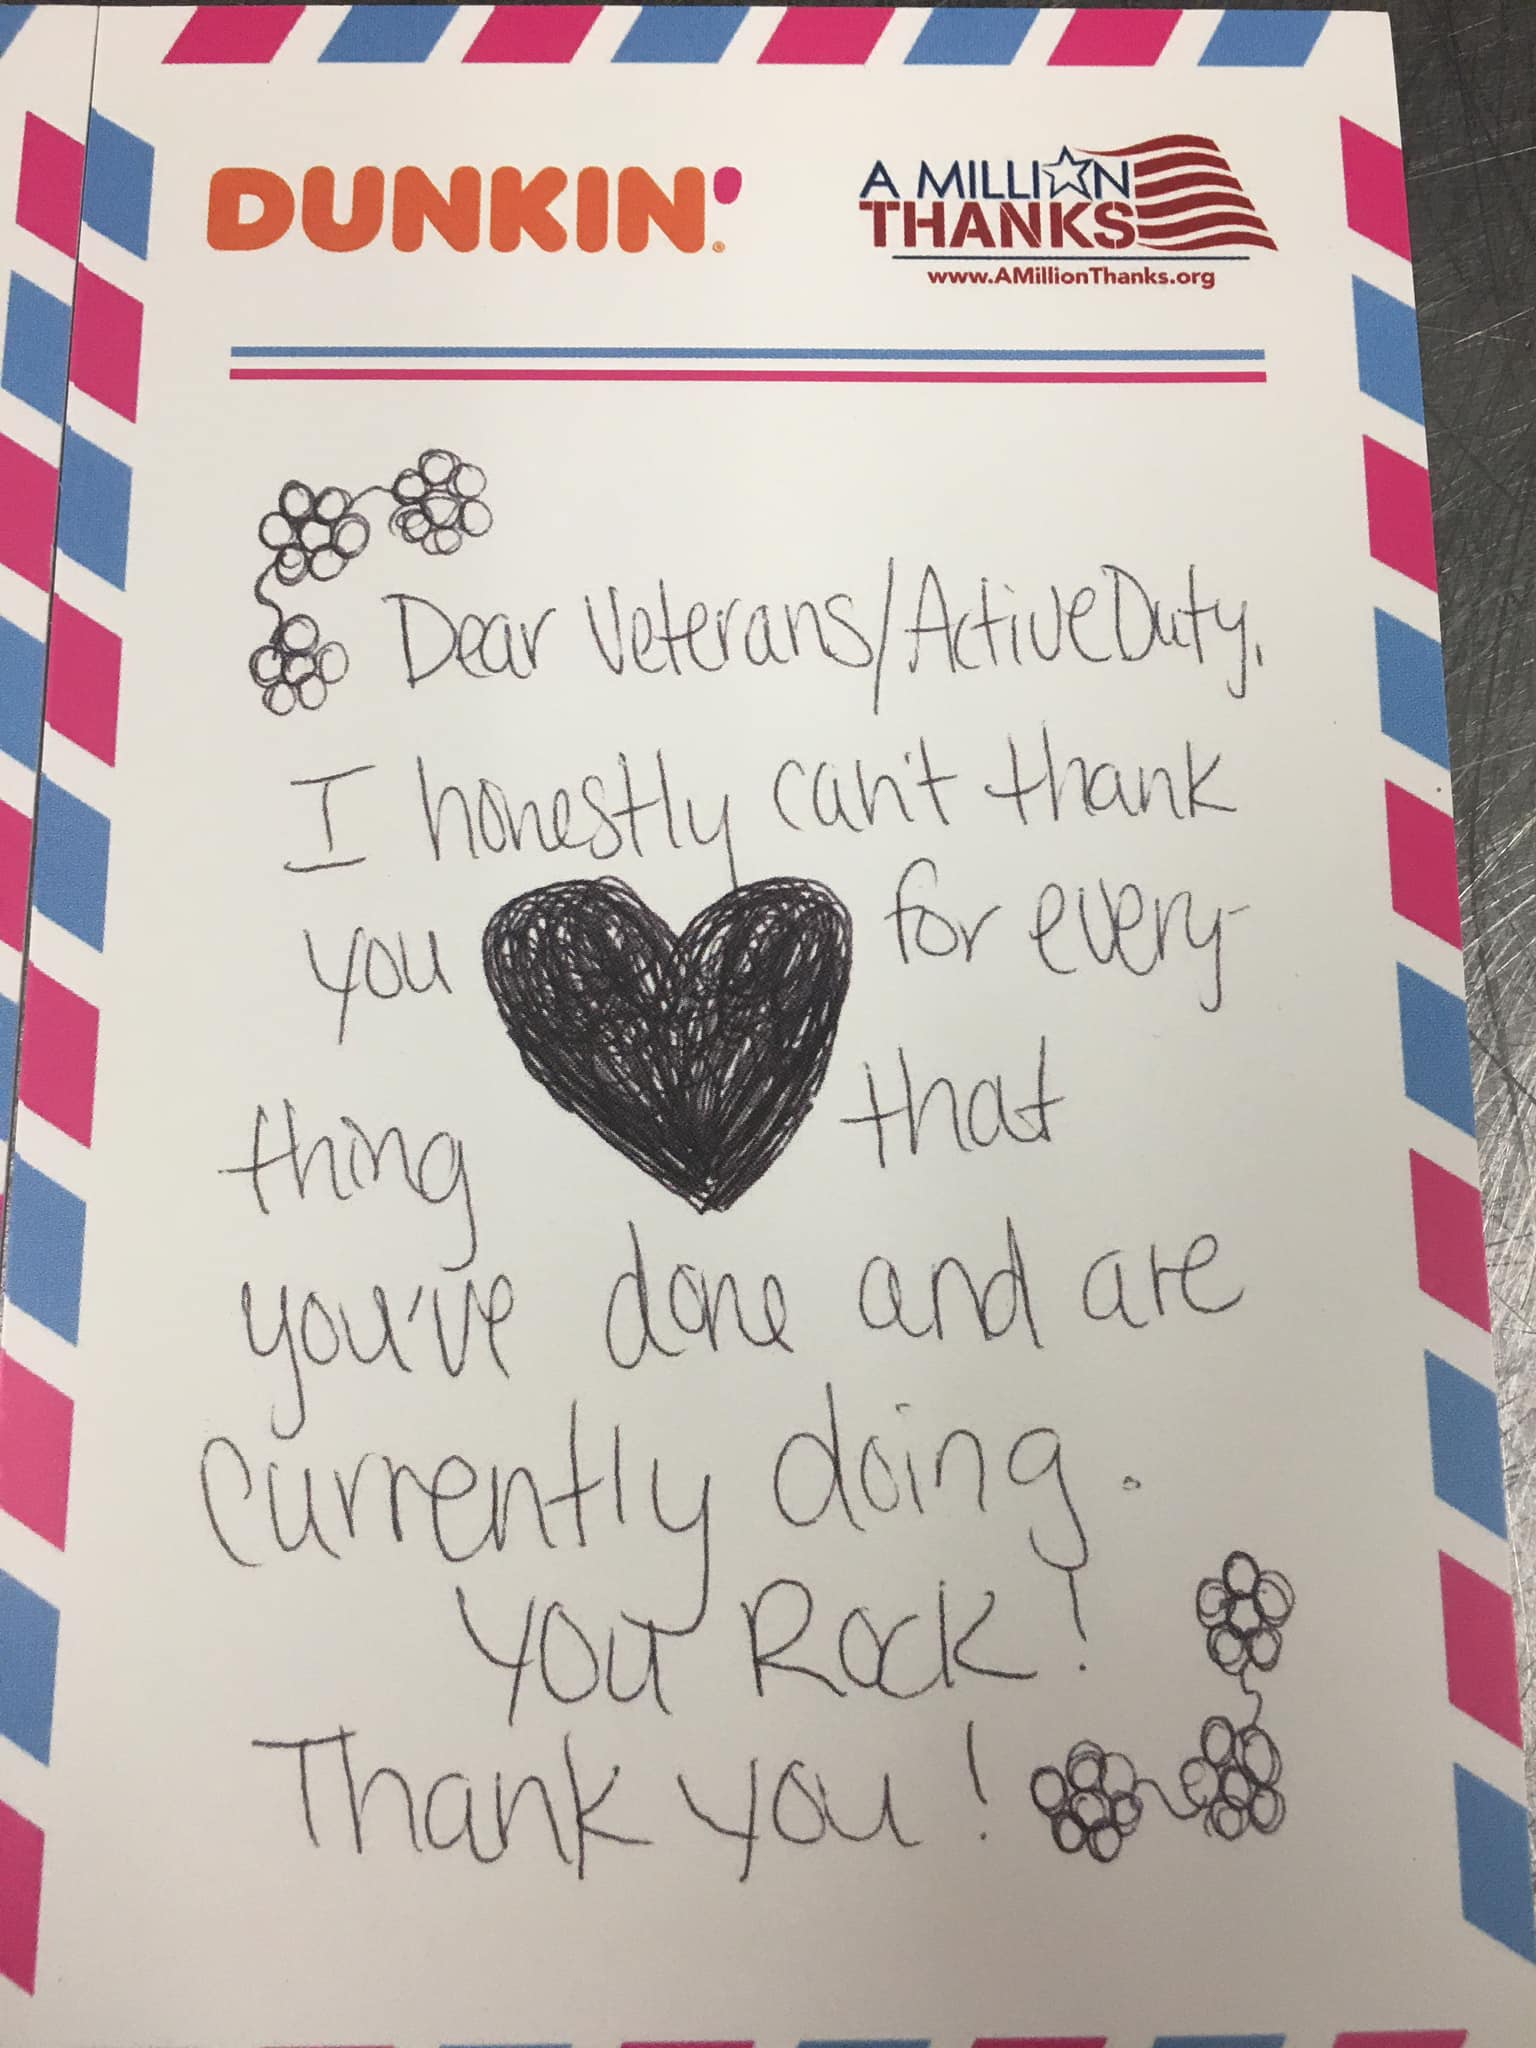 DUNKIN'
A MILLION
THANKS
www.AMillionThanks.org
Dear Veterans/Active Duty,
I honestly can't thank
you for every-
thing that
you've done and are
currently doing.
You Rock!
Thank you!